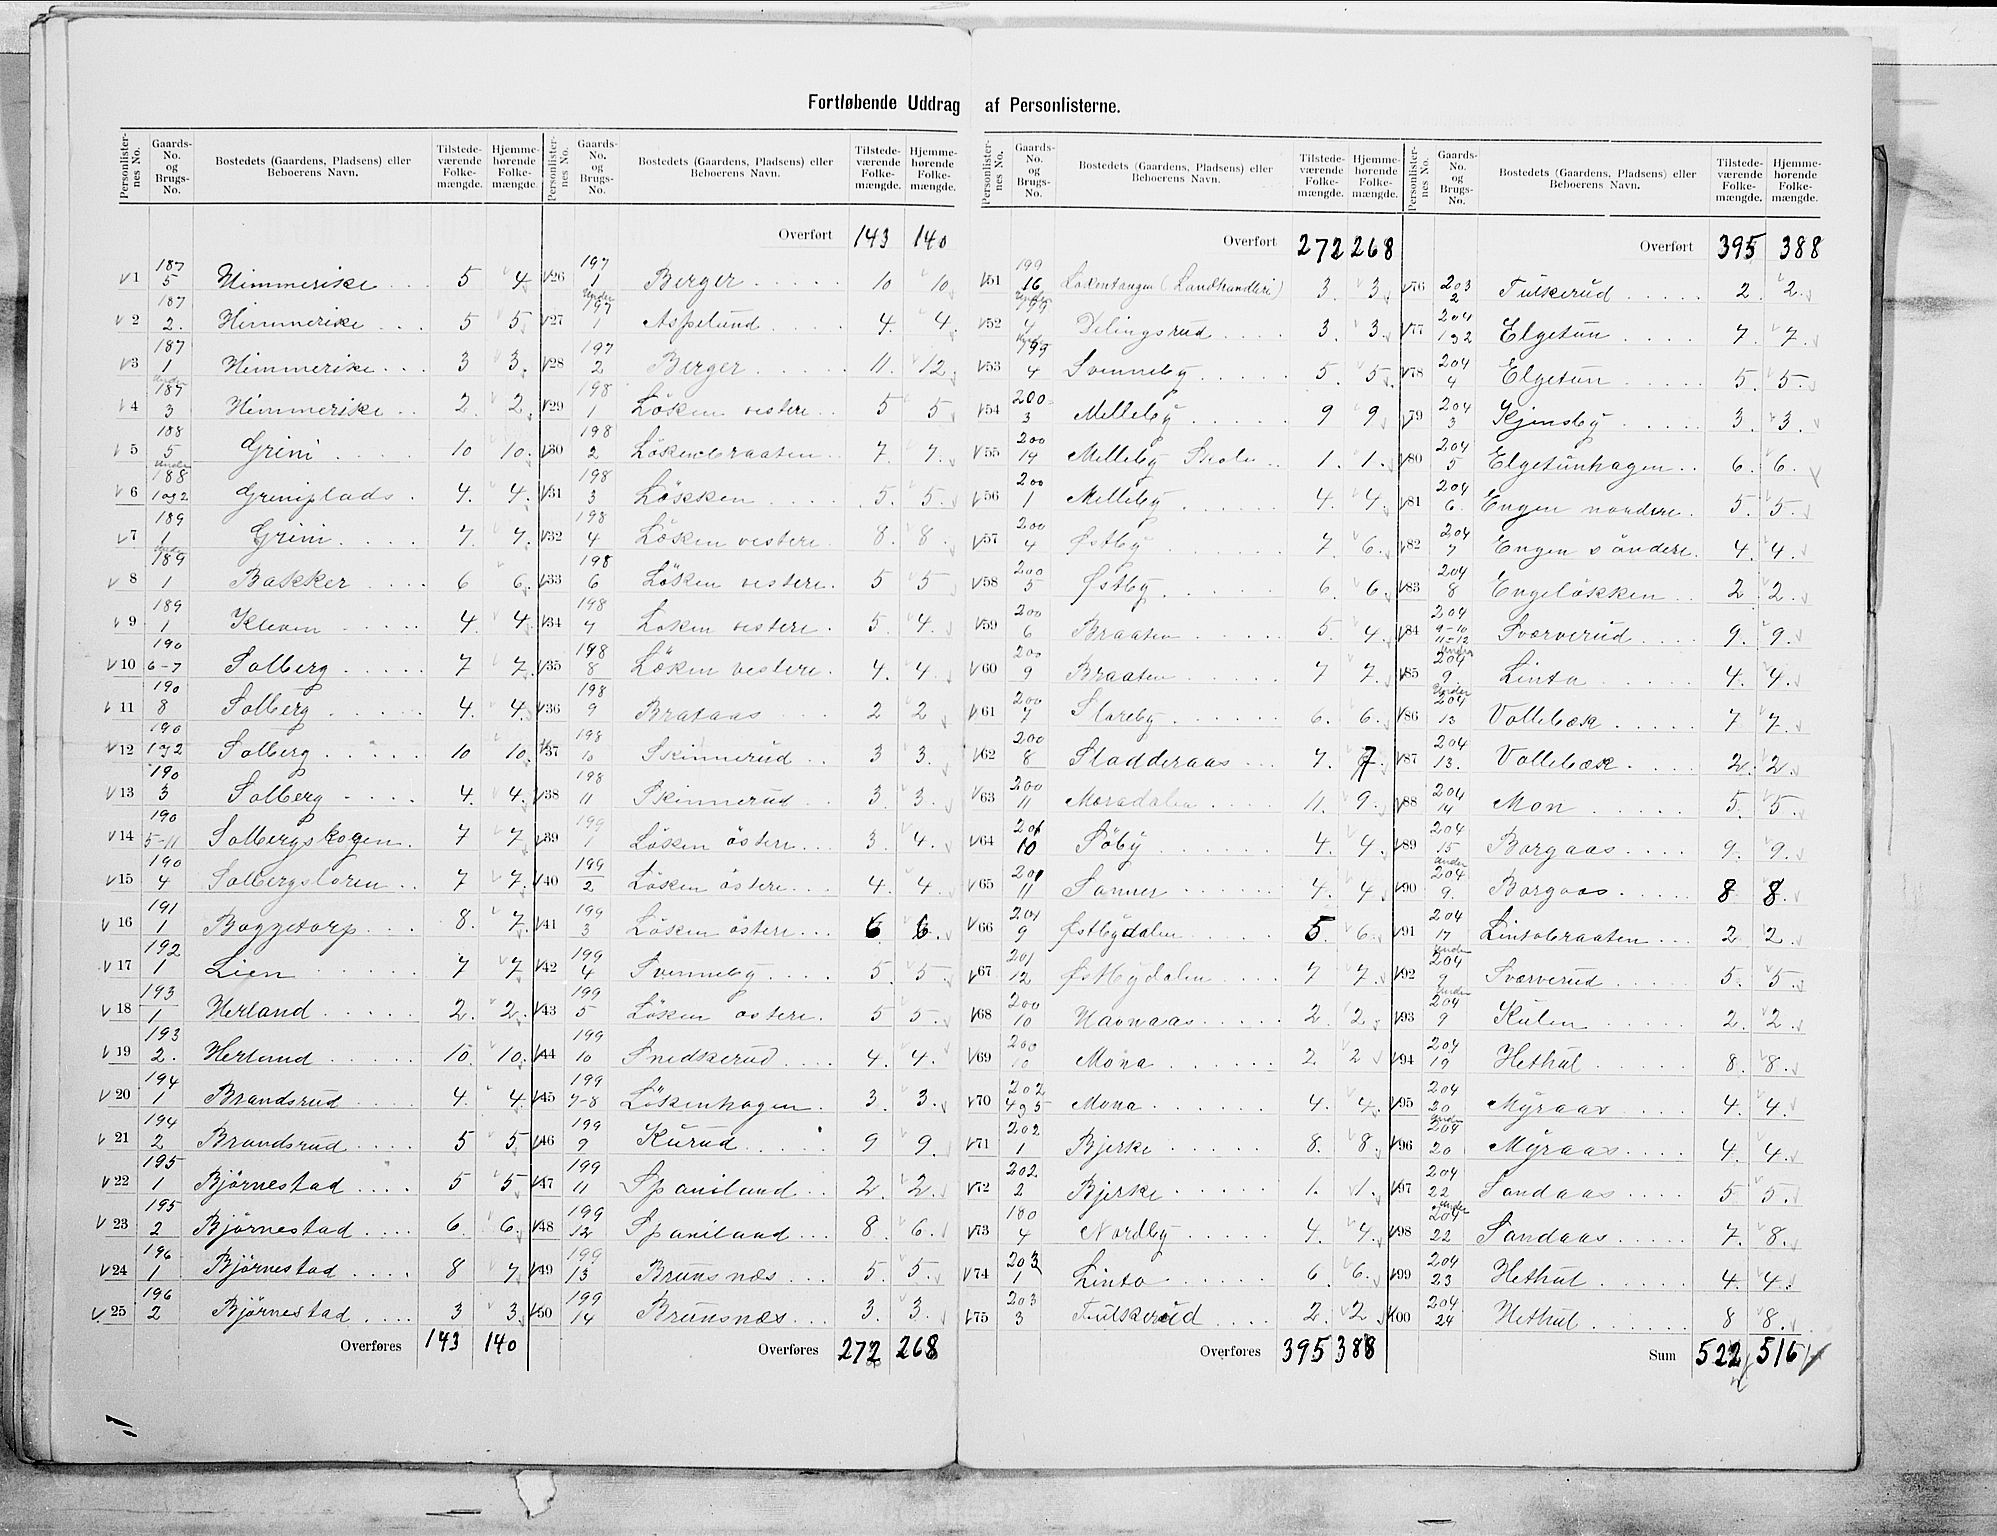 Fortløbende Uddrag af Personlisterne.
Personlisternes No. | Gaards-No. og Brugs-No. | Bostedets (Gaardens, Pladsens) eller Beboerens Navn. | Tilstedeværende Folkemængde. | Hjemmehørende Folkemængde.
1 | 187 5 | Himmerike | 5 | 4
2 | 187 2. | Himmerike | 5 | 5
3 | 187 1 | Himmerike | 3 | 3.
4 | Under 187 3 | Himmerike | 2 | 2
5 | 188 5 | Grini | 10 | 10
6 | Under 188 1 og 2 | Griniplads | 4. | 4.
7 | 189 1 | Grini | 7 | 7.
8 | Under 189 1 | Bakker | 6 | 6
9 | 189 1 | Kleven | 4. | 4
10 | 190 6-7 | Solberg | 7 | 7
11 | 190 8 | Solberg | 4. | 4.
12 | 190 1 g 2 | Solberg | 10 | 10.
13 | 190 3 | Solberg | 4. | 4.
14 | 190 5-11 | Solbergskogen | 7 | 7
15 | 190 4 | Solbergsloren | 7 | 7.
16 | 191 1 | Baggetorp | 8. | 7.
17 | 192 1 | Lien | 7 | 7
18 | 193 1 | Herland | 2. | 2.
19 | 193 2. | Herland | 10. | 10.
20 | 194 1 | Brandsrud | 4. | 4
21 | 194 2 | Brandsrud | 5 | 5
22 | 195 1 | Björnestad | 5 | 5
23 | 195 2 | Björnestad | 6. | 6
24 | 196 1 | Björnestad | 8 | 7
25 | 196 2 | Björnestad | 3 | 3.
Overføres 143 140
Overført 143 140
26 | 197 1 | Berger | 10 | 10
27 | Under 197 1 | Aspelund | 4. | 4.
28 | 197 2 | Berger | 11. | 12.
29 | 198 1 | Löken vestere | 5 | 5
30 | 198 2 | Lökenbraaten | 7. | 7.
31 | 198 3 | Lökken | 5. | 5.
32 | 198 4 | Löken vestere | 8. | 8.
33 | 198 6 | Löken vestere | 5 | 5
34 | 198 7 | Löken vestere | 5. | 4.
35 | 198 8 | Löken vestere | 4. | 4.
36 | 198 9 | Brataas | 2 | 2
37 | 198 10 | Skinnerud | 3 | 3.
38 | 198 11 | Skinnerud | 3. | 3.
39 | 199 1 | Löken östere | 3. | 4.
40 | 199 2 | Löken östere | 4. | 4.
41 | 199 3 | Löken östere | 6 | 6
42 | 199 4 | Svenneby | 5. | 5.
43 | 199 5 | Löken östere | 5 | 5.
44 | 199 10 | Snedkerud | 4. | 4.
45 | 199 7-8 | Lökenhagen | 3. | 3.
46 | 199 9 | Kurud | 9 | 9.
47 | 199 11 | Spaniland | 2. | 2.
48 | 199 12 | Spaniland | 8. | 6.
49 | 199 13 | Brunsnæs | 5. | 5.
50 | 199 14 | Brunsnæs | 3. | 3.
Overføres 272 268
Overført 272 268
51 | 199 16 | Lökentangen (Landhandleri) | 3. | 3
52 | Under 199 4 | Delingsrud | 3. | 3.
53 | Under 199 4 | Svenneby | 5. | 5
54 | 200 3 | Melleby | 9 | 9
55 | 200 14 | Melleby Skole | 1. | 1.
56 | 200 1 | Melleby | 4 | 4.
57 | 200 4 | Østby | 7 | 6.
58 | 200 5 | Østby | 6. | 6.
59 | 200 6 | Braaten | 5. | 4
60 | 200 9 | Braaten | 7 | 7.
61 | 200 7 | Slareby | 6. | 6.
62 | 200 8 | Sladderaas | 7. | 7
63 | 200 11 | Moradalen | 11. | 9.
64 | 201 10 | Söby | 4. | 4.
65 | 201 11 | Sanner | 4. | 4
66 | 201 9 | Østbydalen | 5. | 6.
67 | 201 12 | Østbydalen | 7 | 7.
68 | 200 10 | Havnaas | 2. | 2
69 | 200 10 | Mona | 2. | 2
70 | 202 4 g 5 | Mona | 4. | 4
71 | 202 1 | Bjerke | 8. | 8
72 | 202 2 | Bjerke | 1. | 1.
73 | 180 4 | Nordby | 4. | 4.
74 | 203 1 | Linto | 6 | 6.
75 | 203 3 | Tulskerud | 2. | 2
Overføres 395 388
Overført 395 388
76 | 203 2 | Tulskerud | 2. | 2.
77 | 204 1 g 2 | Elgetun | 7. | 7.
78 | 204 4 | Elgetun | 5. | 5.
79 | 204 3 | Kjensby | 3. | 3.
80 | 204 5 | Elgetunhagen | 6. | 6.
81 | 204 6. | Engen nordere | 5. | 5.
82 | 204 7 | Engen söndere | 4. | 4.
83 | 204 8 | Engelökken | 2. | 2.
84 | 204 9-10 11-12 | Sværverud | 9. | 9.
85 | Under 204 9. | Linto | 4. | 4.
86 | Under 204 13 | Vollebæk | 7 | 7.
87 | 204 13. | Vollebæk | 2. | 2.
88 | 204 14 | Mon | 5. | 5
89 | 204 15 | Borgaas | 9. | 9.
90 | Under 204 9. | Borgaas | 8 | 8
91 | 204 17 | Lintobraaten | 2 | 2
92 | Under 204 9 | Sværverud | 5. | 5
93 | Under 204 9 | Kulen | 2. | 2
94 | 204 19 | Hethul | 8. | 8.
95 | 204 20 | Myraas | 4. | 4.
96 | Under 204 20 | Myraas | 4 | 4.
97 | 204 22 | Sandaas | 5 | 5.
98 | Under 204 22 | Sandaas | 7. | 8.
99 | 204 23 | Hethul | 4. | 4.
100 | 204 24 | Hethul | 8 | 8.
Sum 522 516